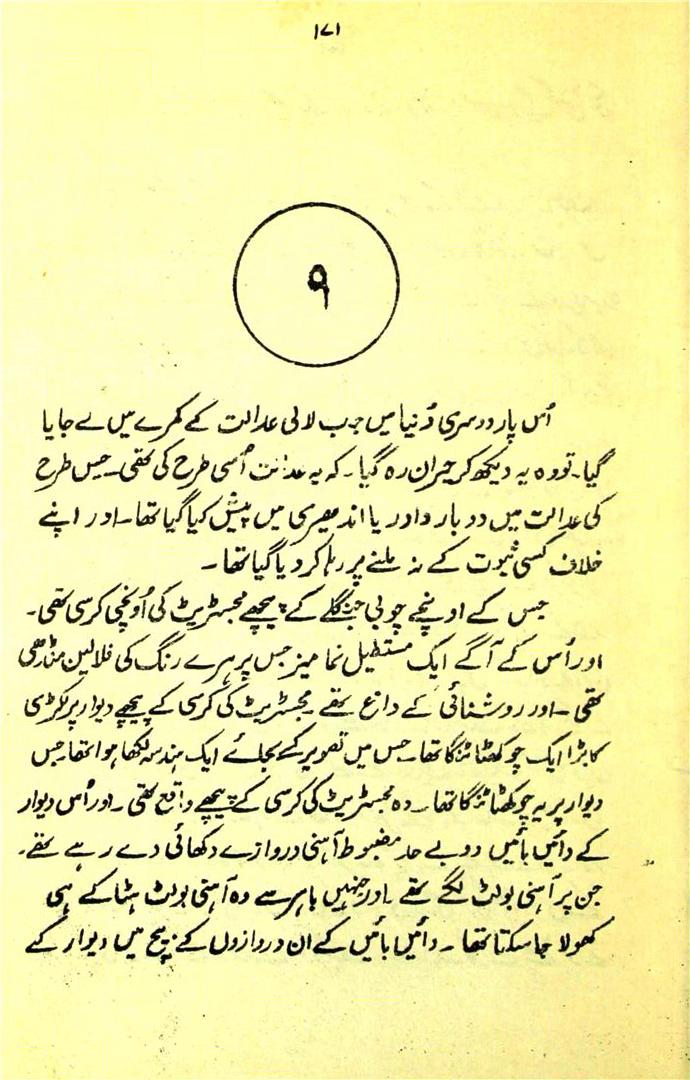 ۱۷۱
۹
اُس پار دوسری دُنیا میں جب لالی عدالت کے کمرے میں لے جایا
گیا۔ تو وہ یہ دیکھ کر حیران رہ گیا۔ کہ یہ عدالت اُسی طرح کی تھی۔ جس طرح
کی عدالت میں دو بار وہ اور یا اندھیری میں پیش کیا گیا تھا۔ اور اپنے
خلاف کسی ثبوت کے نہ ملنے پر رہا کر دیا گیا تھا۔
جس کے اونچے چوبی جنگلے کے پیچھے مجسٹریٹ کی اُونچی کرسی تھی۔
اور اُس کے آگے ایک مستطیل نما میز جس پر ہرے رنگ کی فلالین منڈھی
تھی۔ اور روشنائی کے داغ تھے۔ مجسٹریٹ کی کرسی کے پیچھے دیوار پر لکڑی
کا بڑا ایک چوکھٹا ٹنگا تھا۔ جس میں تصویر کے بجائے ایک ہندسہ لکھا ہوا تھا۔ جس
دیوار پر یہ چوکھٹا ٹنگا تھا۔ وہ مجسٹریٹ کی کرسی کے پیچھے واقع تھی۔ اور اُس دیوار
کے دائیں بائیں دو بے حد مضبوط آہنی دروازے دکھائی دے رہے تھے۔
جن پر آہنی بولٹ لگے تھے۔ اور جنہیں باہر سے وہ آہنی بولٹ ہٹا کے ہی
کھولا جا سکتا تھا۔ دائیں بائیں کے ان دروازوں کے بیچ میں دیوار کے